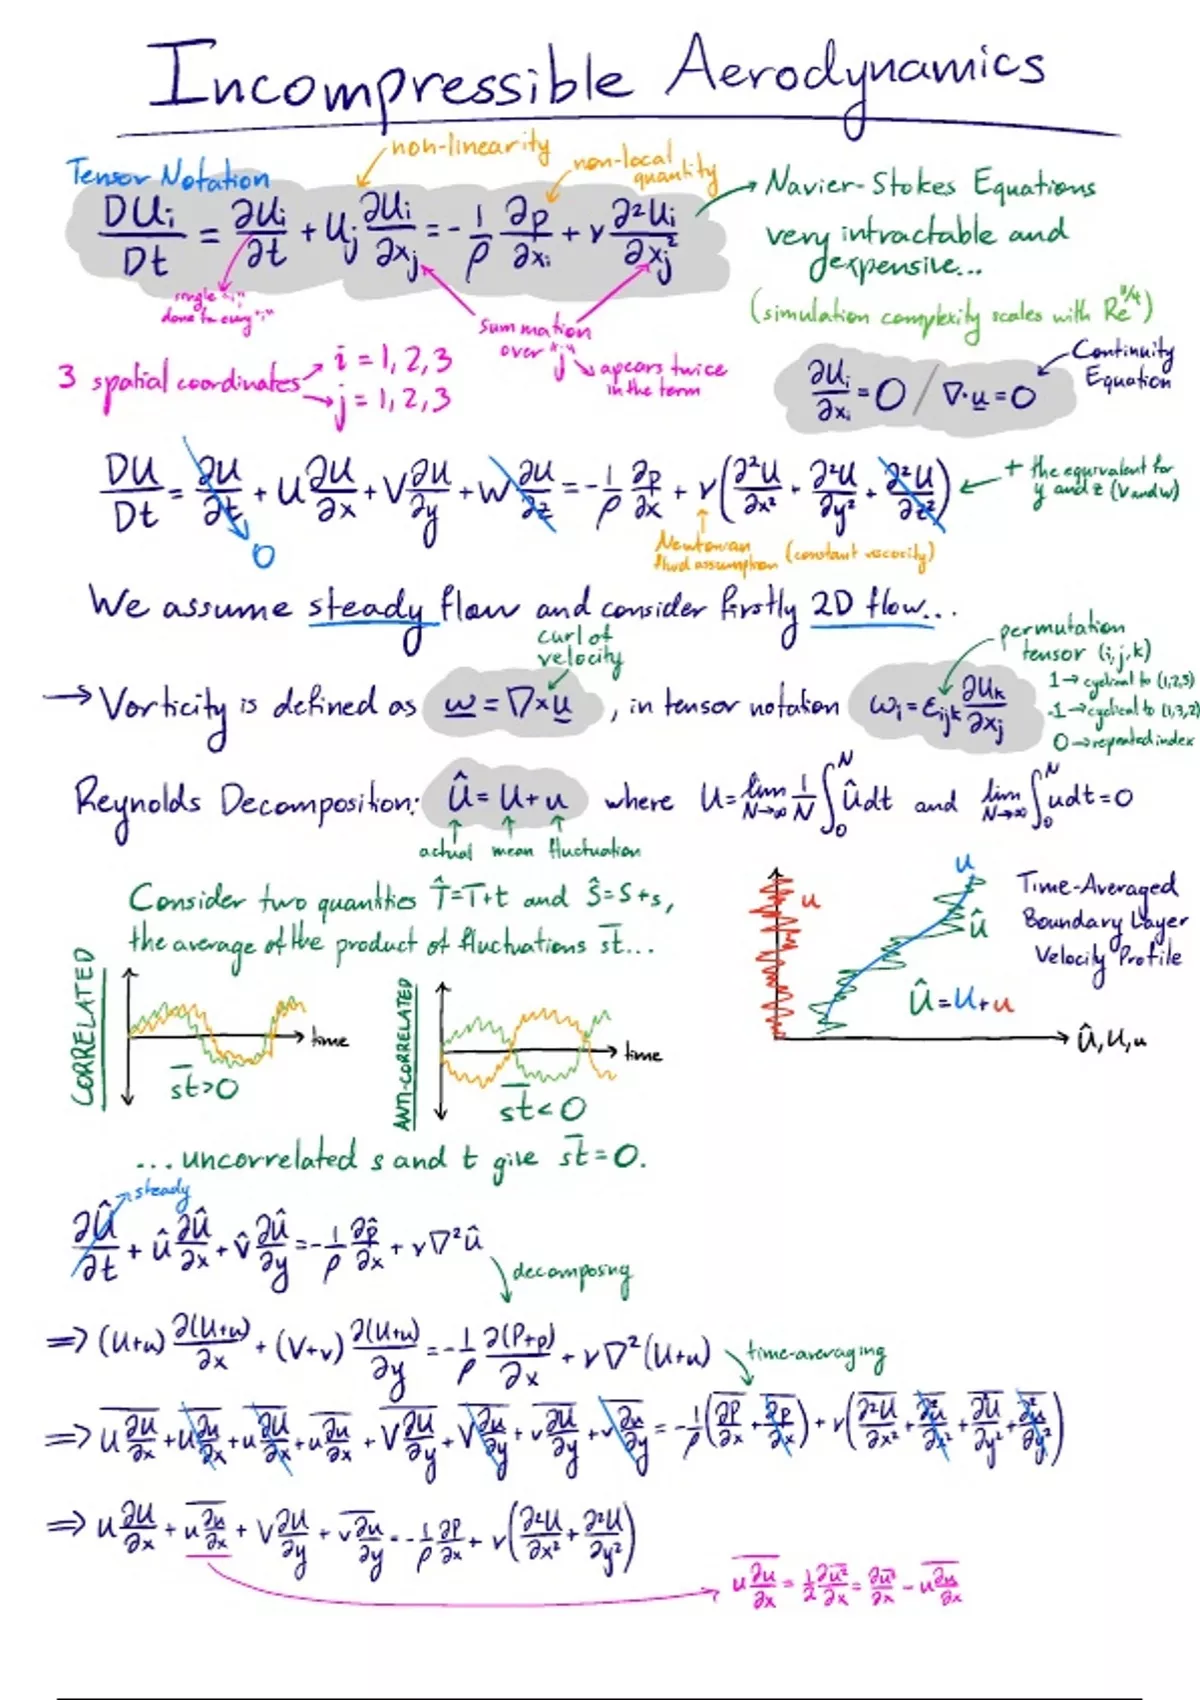 Incompressible Aerodynamics
Tensor Notation
non-linearity
non-local quantity
DUᵢ/Dt = ∂Uᵢ/∂t + Uⱼ ∂Uᵢ/∂xⱼ = -1/ρ ∂p/∂xᵢ + ν ∂²Uᵢ/∂xⱼ²
→ Navier-Stokes Equations
very intractable and
expensive...
(simulation complexity scales with Re^11/4)
single "i",
done for every "i"
summation
over "j"
apears twice
in the term
3 spatial coordinates → i = 1, 2, 3
→ j = 1, 2, 3
∂Uᵢ/∂xᵢ = 0 / ∇·u = 0
Continuity
Equation
DU/Dt = ∂U/∂t + U ∂U/∂x + V ∂U/∂y + W ∂U/∂z = -1/ρ ∂p/∂x + ν(∂²U/∂x² + ∂²U/∂y² + ∂²U/∂z²)
0
+ the equivalent for
y and z (V and W)
Newtonian
fluid assumption (constant viscocity)
We assume steady flow and consider firstly 2D flow...
curl of
velocity
permutation
tensor (i, j, k)
1 → cyclical to (1,2,3)
-1 → cyclical to (1,3,2)
0 → repeated index
→ Vorticity is defined as ω = ∇×u , in tensor notation ωᵢ = εᵢⱼₖ ∂Uₖ/∂xⱼ
Reynolds Decomposition: Û = U + u where U = lim N→∞ 1/N ∫₀ᴺ Û dt and lim N→∞ ∫₀ᴺ u dt = 0
actual mean fluctuation
Consider two quantities T̂=T+t and Ŝ=S+s,
the average of the product of fluctuations s̅t̅...
CORRELATED
time
s̅t̅>0
ANTI-CORRELATED
time
s̅t̅<0
u
U
Û
Û=U+u
Û, U, u
Time-Averaged
Boundary Layer
Velocity Profile
... uncorrelated s and t give s̅t̅=0.
steady
∂Û/∂t + û ∂Û/∂x + v̂ ∂Û/∂y = -1/ρ ∂p̂/∂x + ν∇²û
decomposing
⇒ (U+u) ∂(U+u)/∂x + (V+v) ∂(U+u)/∂y = -1/ρ ∂(P+p)/∂x + ν∇²(U+u)
time-averaging
⇒ \overline{U ∂U/∂x} + \overline{U ∂u/∂x} + \overline{u ∂U/∂x} + \overline{u ∂u/∂x} + \overline{V ∂U/∂y} + \overline{V ∂u/∂y} + \overline{v ∂U/∂y} + \overline{v ∂u/∂y} = -1/ρ(\overline{∂P/∂x} + \overline{∂p/∂x}) + ν(\overline{∂²U/∂x²} + \overline{∂²u/∂x²} + \overline{∂²U/∂y²} + \overline{∂²u/∂y²})
⇒ U ∂U/∂x + \overline{u ∂u/∂x} + V ∂U/∂y + \overline{v ∂u/∂y} = -1/ρ ∂P/∂x + ν(∂²U/∂x² + ∂²U/∂y²)
\overline{u ∂u/∂x} = 1/2 ∂\overline{u²}/∂x = ∂\overline{u²}/∂x - \overline{u ∂u/∂x}